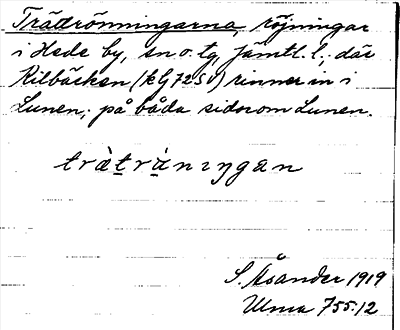 Trädrönningarna, röjningar
i Hede by, sn o. tg, Jämtl. l.; där
Kilbäcken (kG7250) rinner in i
Lunen; på båda sidor om Lunen.
trätränıŋgan
S. Åsander 1919
Ulma 755:12